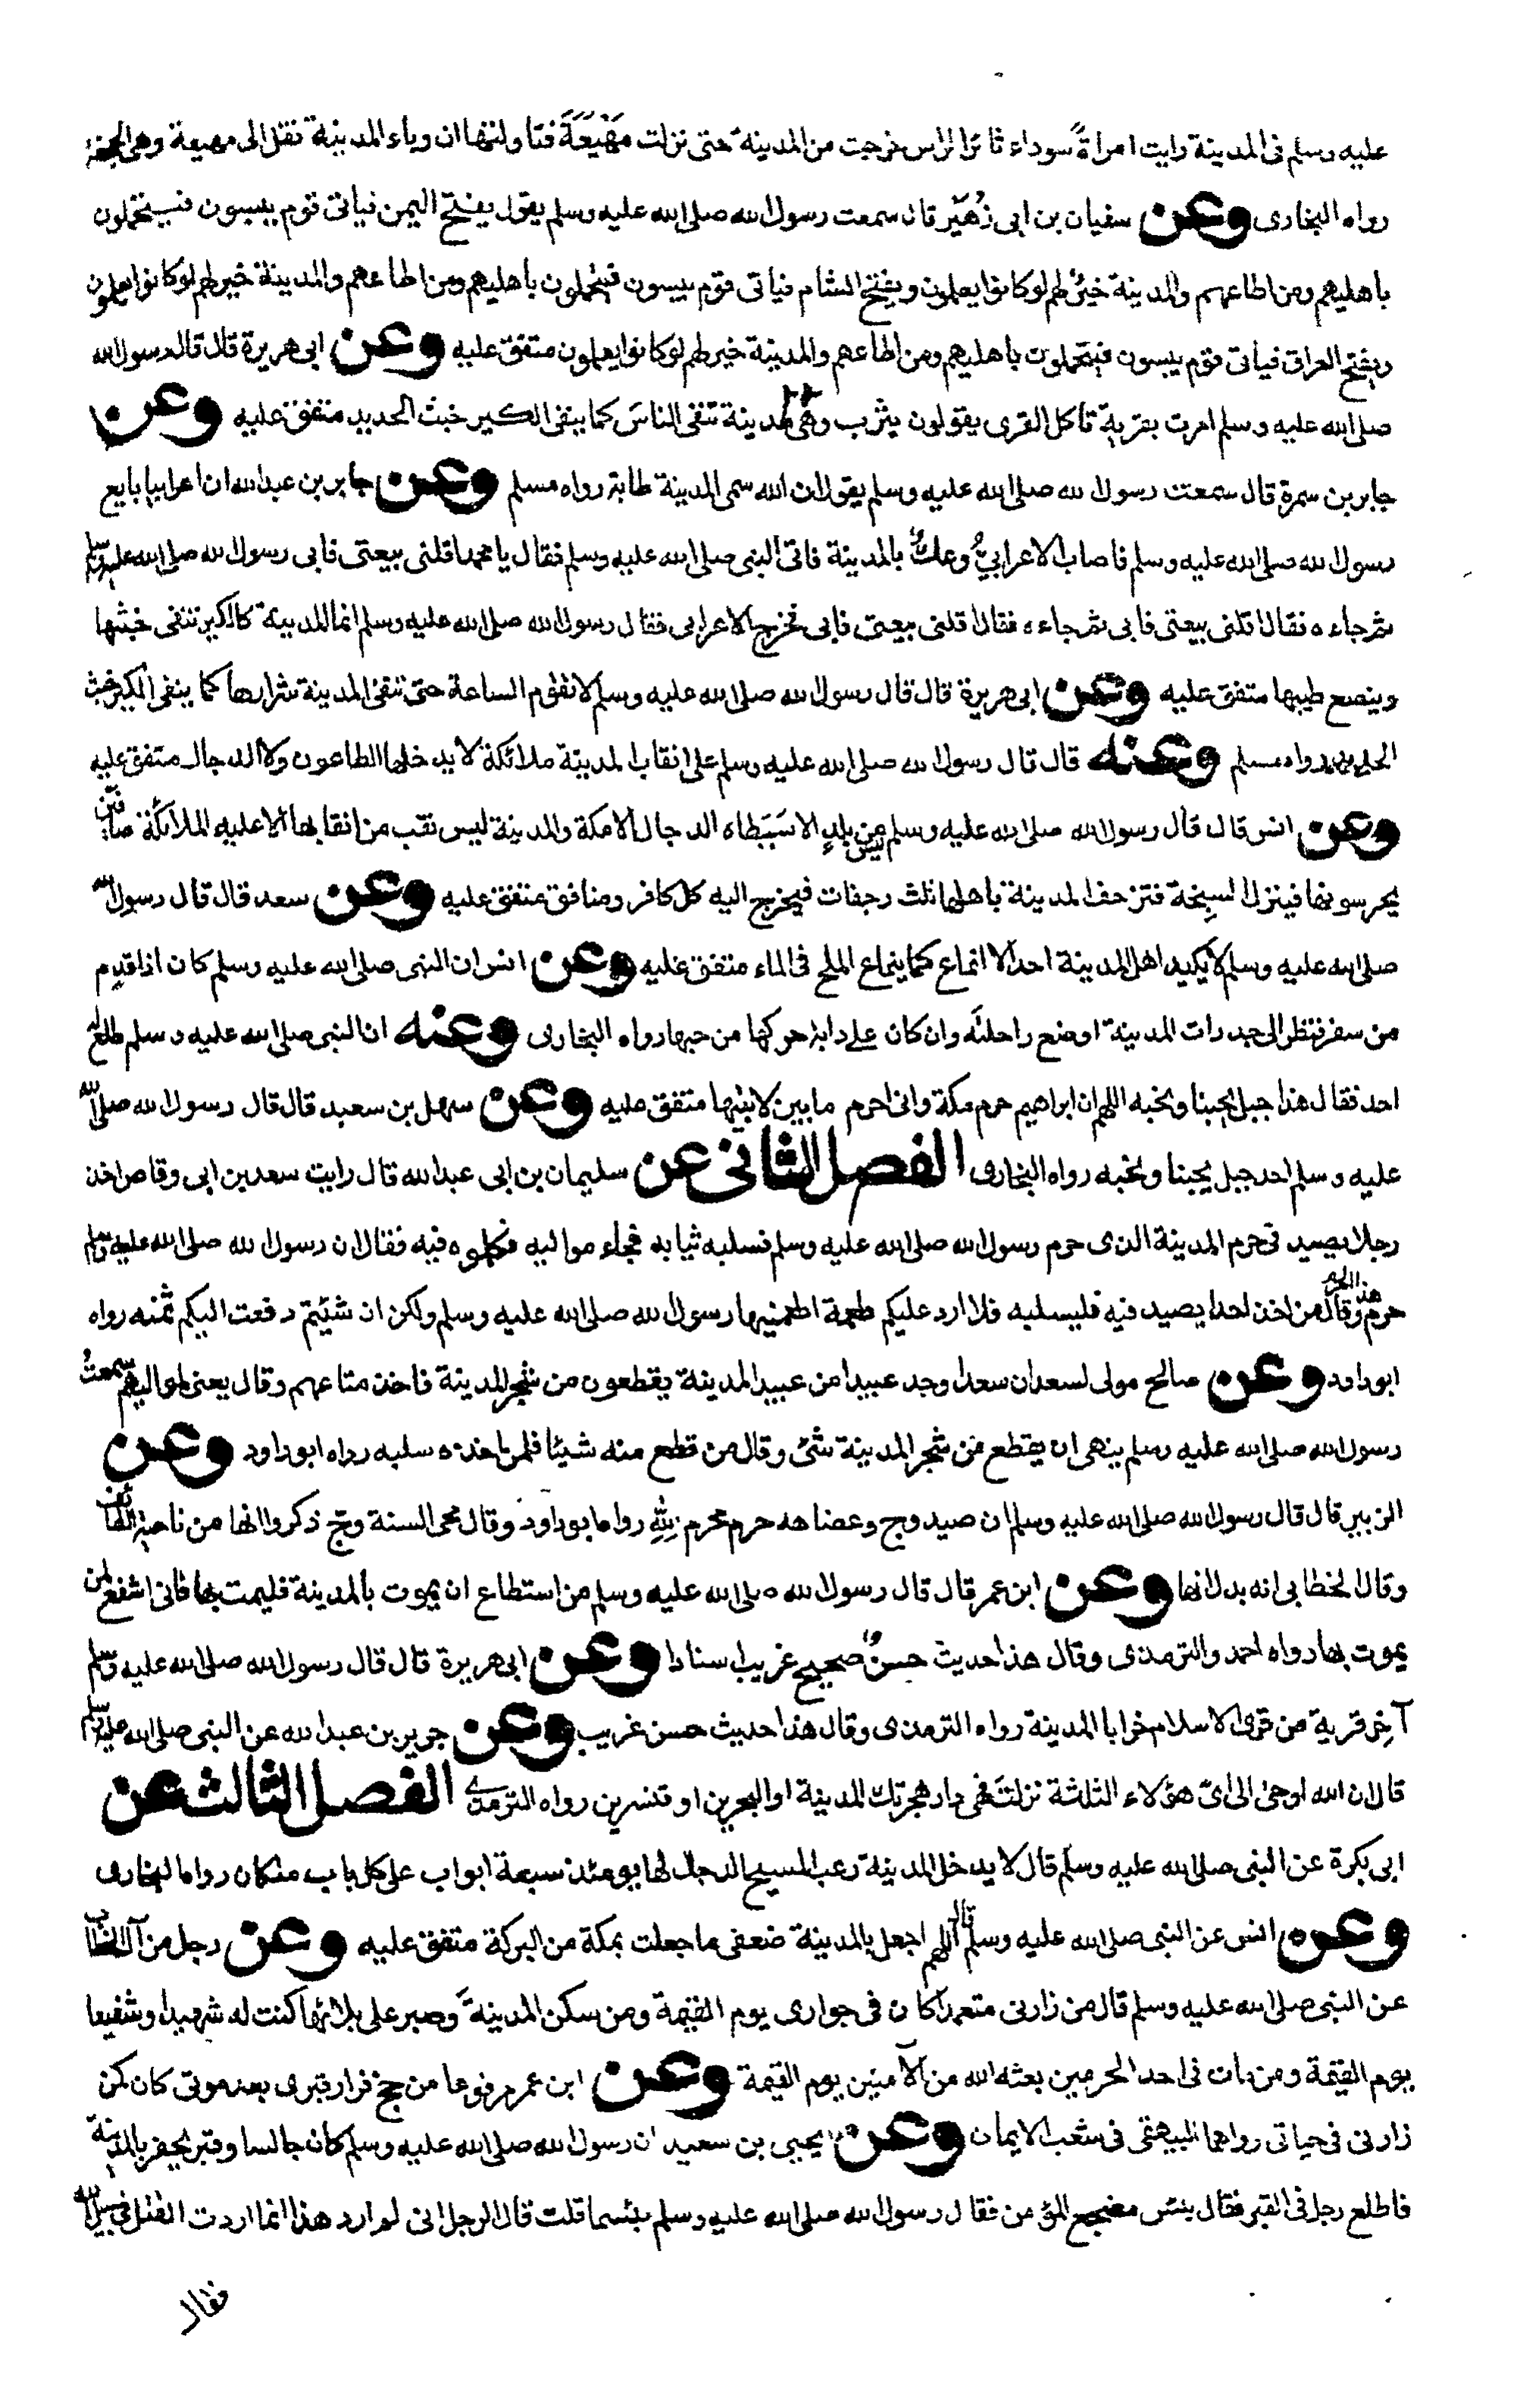 عليه وسلم فى المدينة رايت امراة سوداء ثائرا لراس خرجت من المدينة حتى نزلت مَهْيَعَةَ فتاولتها ان وباء المدينة نقل الى مهيعة وهى الجحفة
رواه البخارى وعن سفيان بن ابى زُهَيْر قال سمعت رسول الله صلى الله عليه وسلم يقول يفتح اليمن فياتى قوم يبسون فيتحملون
باهليهم ومن اطاعهم والمدينة خيرٌ لهم لو كانوا يعلمون ويفتح الشام فياتى قوم يبسون فيتحملون باهليهم ومن اطاعهم والمدينة خير لهم لو كانوا يعلمون
ويفتح العراق فياتى قوم يبسون فيتحملون باهليهم ومن اطاعهم والمدينة خير لهم لو كانوا يعلمون متفق عليه وعن ابى هريرة قال قال رسول الله
صلى الله عليه وسلم امرت بقرية تاكل القرى يقولون يثرب وهى المدينة تنفى الناس كما ينفى الكير خبث الحديد متفق عليه وعن
جابر بن سمرة قال سمعت رسول الله صلى الله عليه وسلم يقول ان الله سمى المدينة طابة رواه مسلم وعن جابر بن عبد الله ان اعرابيا بايع
رسول الله صلى الله عليه وسلم فاصاب الاعرابيَّ وعكٌ بالمدينة فاتى النبى صلى الله عليه وسلم فقال يا محمد اقلنى بيعتى فابى رسول الله صلى الله عليه وسلم
ثم جاءه فقال اقلنى بيعتى فابى ثم جاءه فقال اقلنى بيعتى فابى فخرج الاعرابى فقال رسول الله صلى الله عليه وسلم انما المدينة كالكير تنفى خبثها
وينصع طيبها متفق عليه وعن ابى هريرة قال قال رسول الله صلى الله عليه وسلم لا تقوم الساعة حتى تنفى المدينة شرارها كما ينفى الكير خبث
الحديد رواه مسلم وعنه قال قال رسول الله صلى الله عليه وسلم على انقاب المدينة ملائكة لا يدخلها الطاعون ولا الدجال متفق عليه
وعن انس قال قال رسول الله صلى الله عليه وسلم ليس من بلدٍ الا سَيَطاه الدجال الا مكة والمدينة ليس نقب من انقابها الا عليه الملائكة صافين
يحرسونها فينزل السبِخة فترجف المدينة باهلها ثلث رجفات فيخرج اليه كل كافر ومنافق متفق عليه وعن سعد قال قال رسول الله
صلى الله عليه وسلم لا يكيد اهل المدينة احد الا انماع كما ينماع الملح فى الماء متفق عليه وعن انس ان النبى صلى الله عليه وسلم كان اذا قدم
من سفر فنظر الى جدرات المدينة اوضع راحلته وان كان على دابة حركها من حبها رواه البخارى وعنه ان النبى صلى الله عليه وسلم طلع له
احد فقال هذا جبل يحبنا ونحبه اللهم ان ابراهيم حرم مكة وانى احرم ما بين لابتيها متفق عليه وعن سهل بن سعيد قال قال رسول الله صلى الله
عليه وسلم احد جبل يحبنا ونحبه رواه البخارى الفصل الثانى عن سليمان بن ابى عبد الله قال رايت سعد بن ابى وقاص اخذ
رجلا يصيد فى حرم المدينة الذى حرم رسول الله صلى الله عليه وسلم فسلبه ثيابه فجاء مواليه فكلموه فيه فقال ان رسول الله صلى الله عليه وسلم
حرم هذا الحرم وقال من اخذ احدا يصيد فيه فليسلبه فلا ارد عليكم طعمة اطعمنيها رسول الله صلى الله عليه وسلم ولكن ان شئتم دفعت اليكم ثمنه رواه
ابوداود وعن صالح مولى لسعد ان سعدا وجد عبيدا من عبيد المدينة يقطعون من شجر المدينة فاخذ متاعهم وقال يعنى لمواليهم سمعتُ
رسول الله صلى الله عليه وسلم ينهى ان يقطع من شجر المدينة شئ وقال من قطع منه شيئا فلمن اخذه سلبه رواه ابوداود وعن
الزبير قال قال رسول الله صلى الله عليه وسلم ان صيد وج وعضاهه حرم محرم للهِ رواه ابوداود وقال محى السنة وجّ ذكروا انها من ناحية الطائف
وقال الخطابى انه بدل انها وعن ابن عمر قال قال رسول الله صلى الله عليه وسلم من استطاع ان يموت بالمدينة فليمت بها فانى اشفع لمن
يموت بها رواه احمد والترمذى وقال هذا حديث حسنٌ صحيح غريب اسنادا وعن ابى هريرة قال قال رسول الله صلى الله عليه وسلم
آخر قرية من قرى الاسلام خرابا المدينة رواه الترمذى وقال هذا حديث حسن غريب وعن جرير بن عبد الله عن النبى صلى الله عليه وسلم
قال ان الله اوحى الى اىّ هؤلاء الثلثة نزلتَ فهى دار هجرتك المدينة او البحرين او قنسرين رواه الترمذى الفصل الثالث عن
ابى بكرة عن النبى صلى الله عليه وسلم قال لا يدخل المدينة رعب المسيح الدجال لها يومئذ سبعة ابواب على كل باب ملكان رواه البخارى
وعن انس عن النبى صلى الله عليه وسلم قال اللهم اجعل بالمدينة ضعفى ما جعلت بمكة من البركة متفق عليه وعن رجل من آل الخطاب
عن النبى صلى الله عليه وسلم قال من زارنى متعمدا كان فى جوارى يوم القيٰمة ومن سكن المدينة وصبر على بلائها كنت له شهيدا وشفيعا
يوم القيٰمة ومن مات فى احد الحرمين بعثه الله من الآمنين يوم القيمة وعن ابن عمر مرفوعا من حج فزار قبرى بعد موتى كان كمن
زارنى فى حياتى رواهما البيهقى فى شعب الايمان وعن يحيى بن سعيد ان رسول الله صلى الله عليه وسلم كان جالسا وقبر يحفر بالمدينة
فاطلع رجل فى القبر فقال بئس مضجع المؤمن فقال رسول الله صلى الله عليه وسلم بئسما قلت قال الرجل انى لم ارد هذا انما اردت القتل فى سبيل الله
فقال